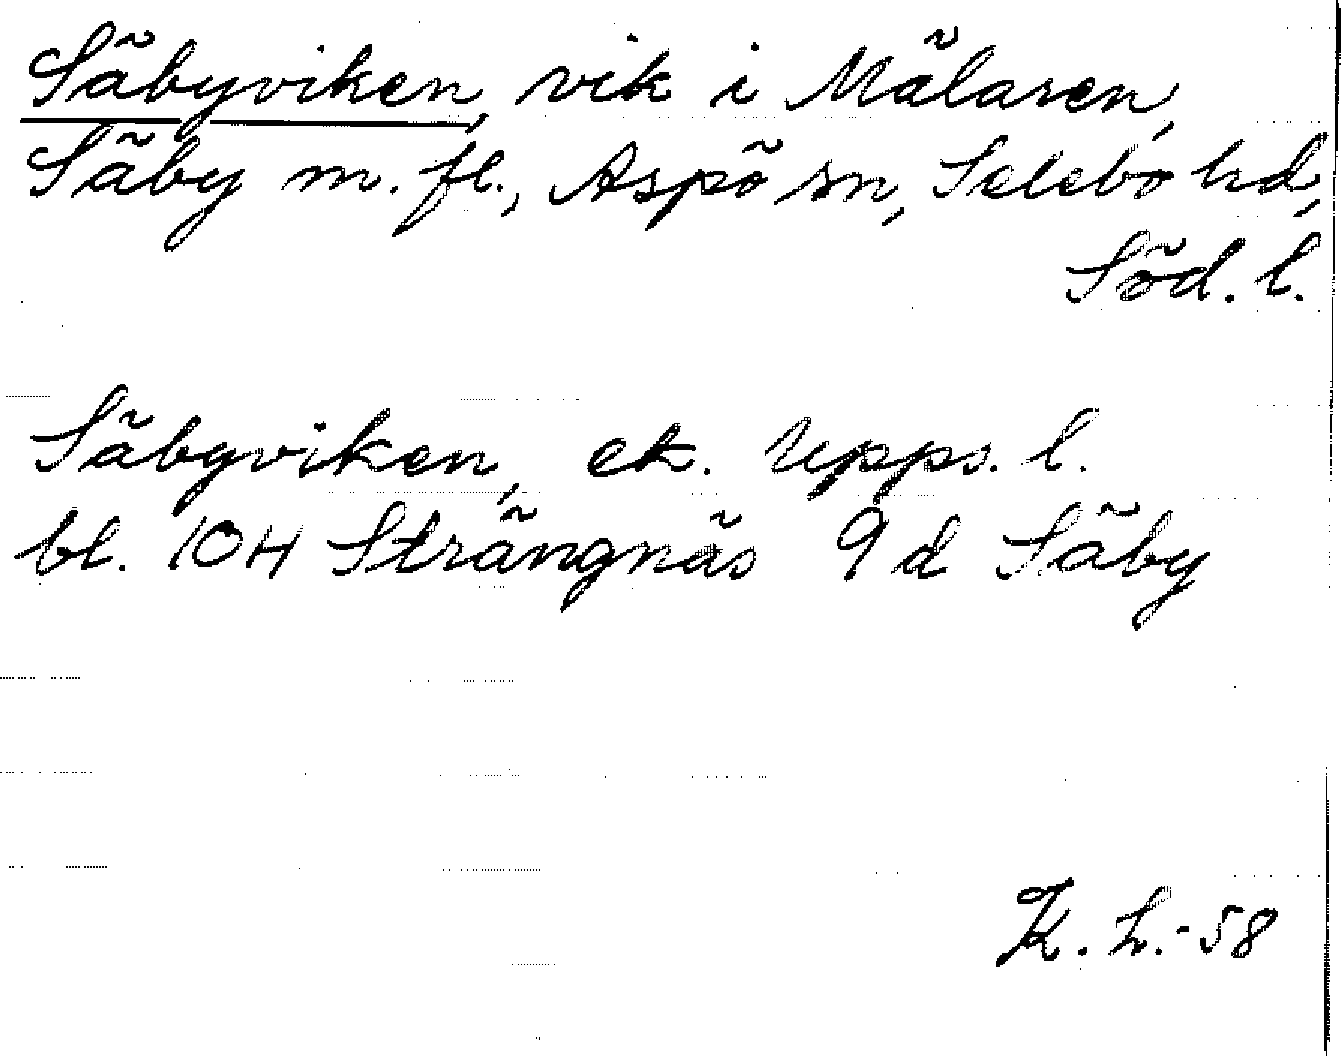 Säbyviken, vik i Mälaren,
Säby m. fl., Aspö sn, Selebo hd,
Söd. l.
Säbyviken, ek. Upps. l.
bl. 10H Strängnäs 9d Säby
K. h. -58